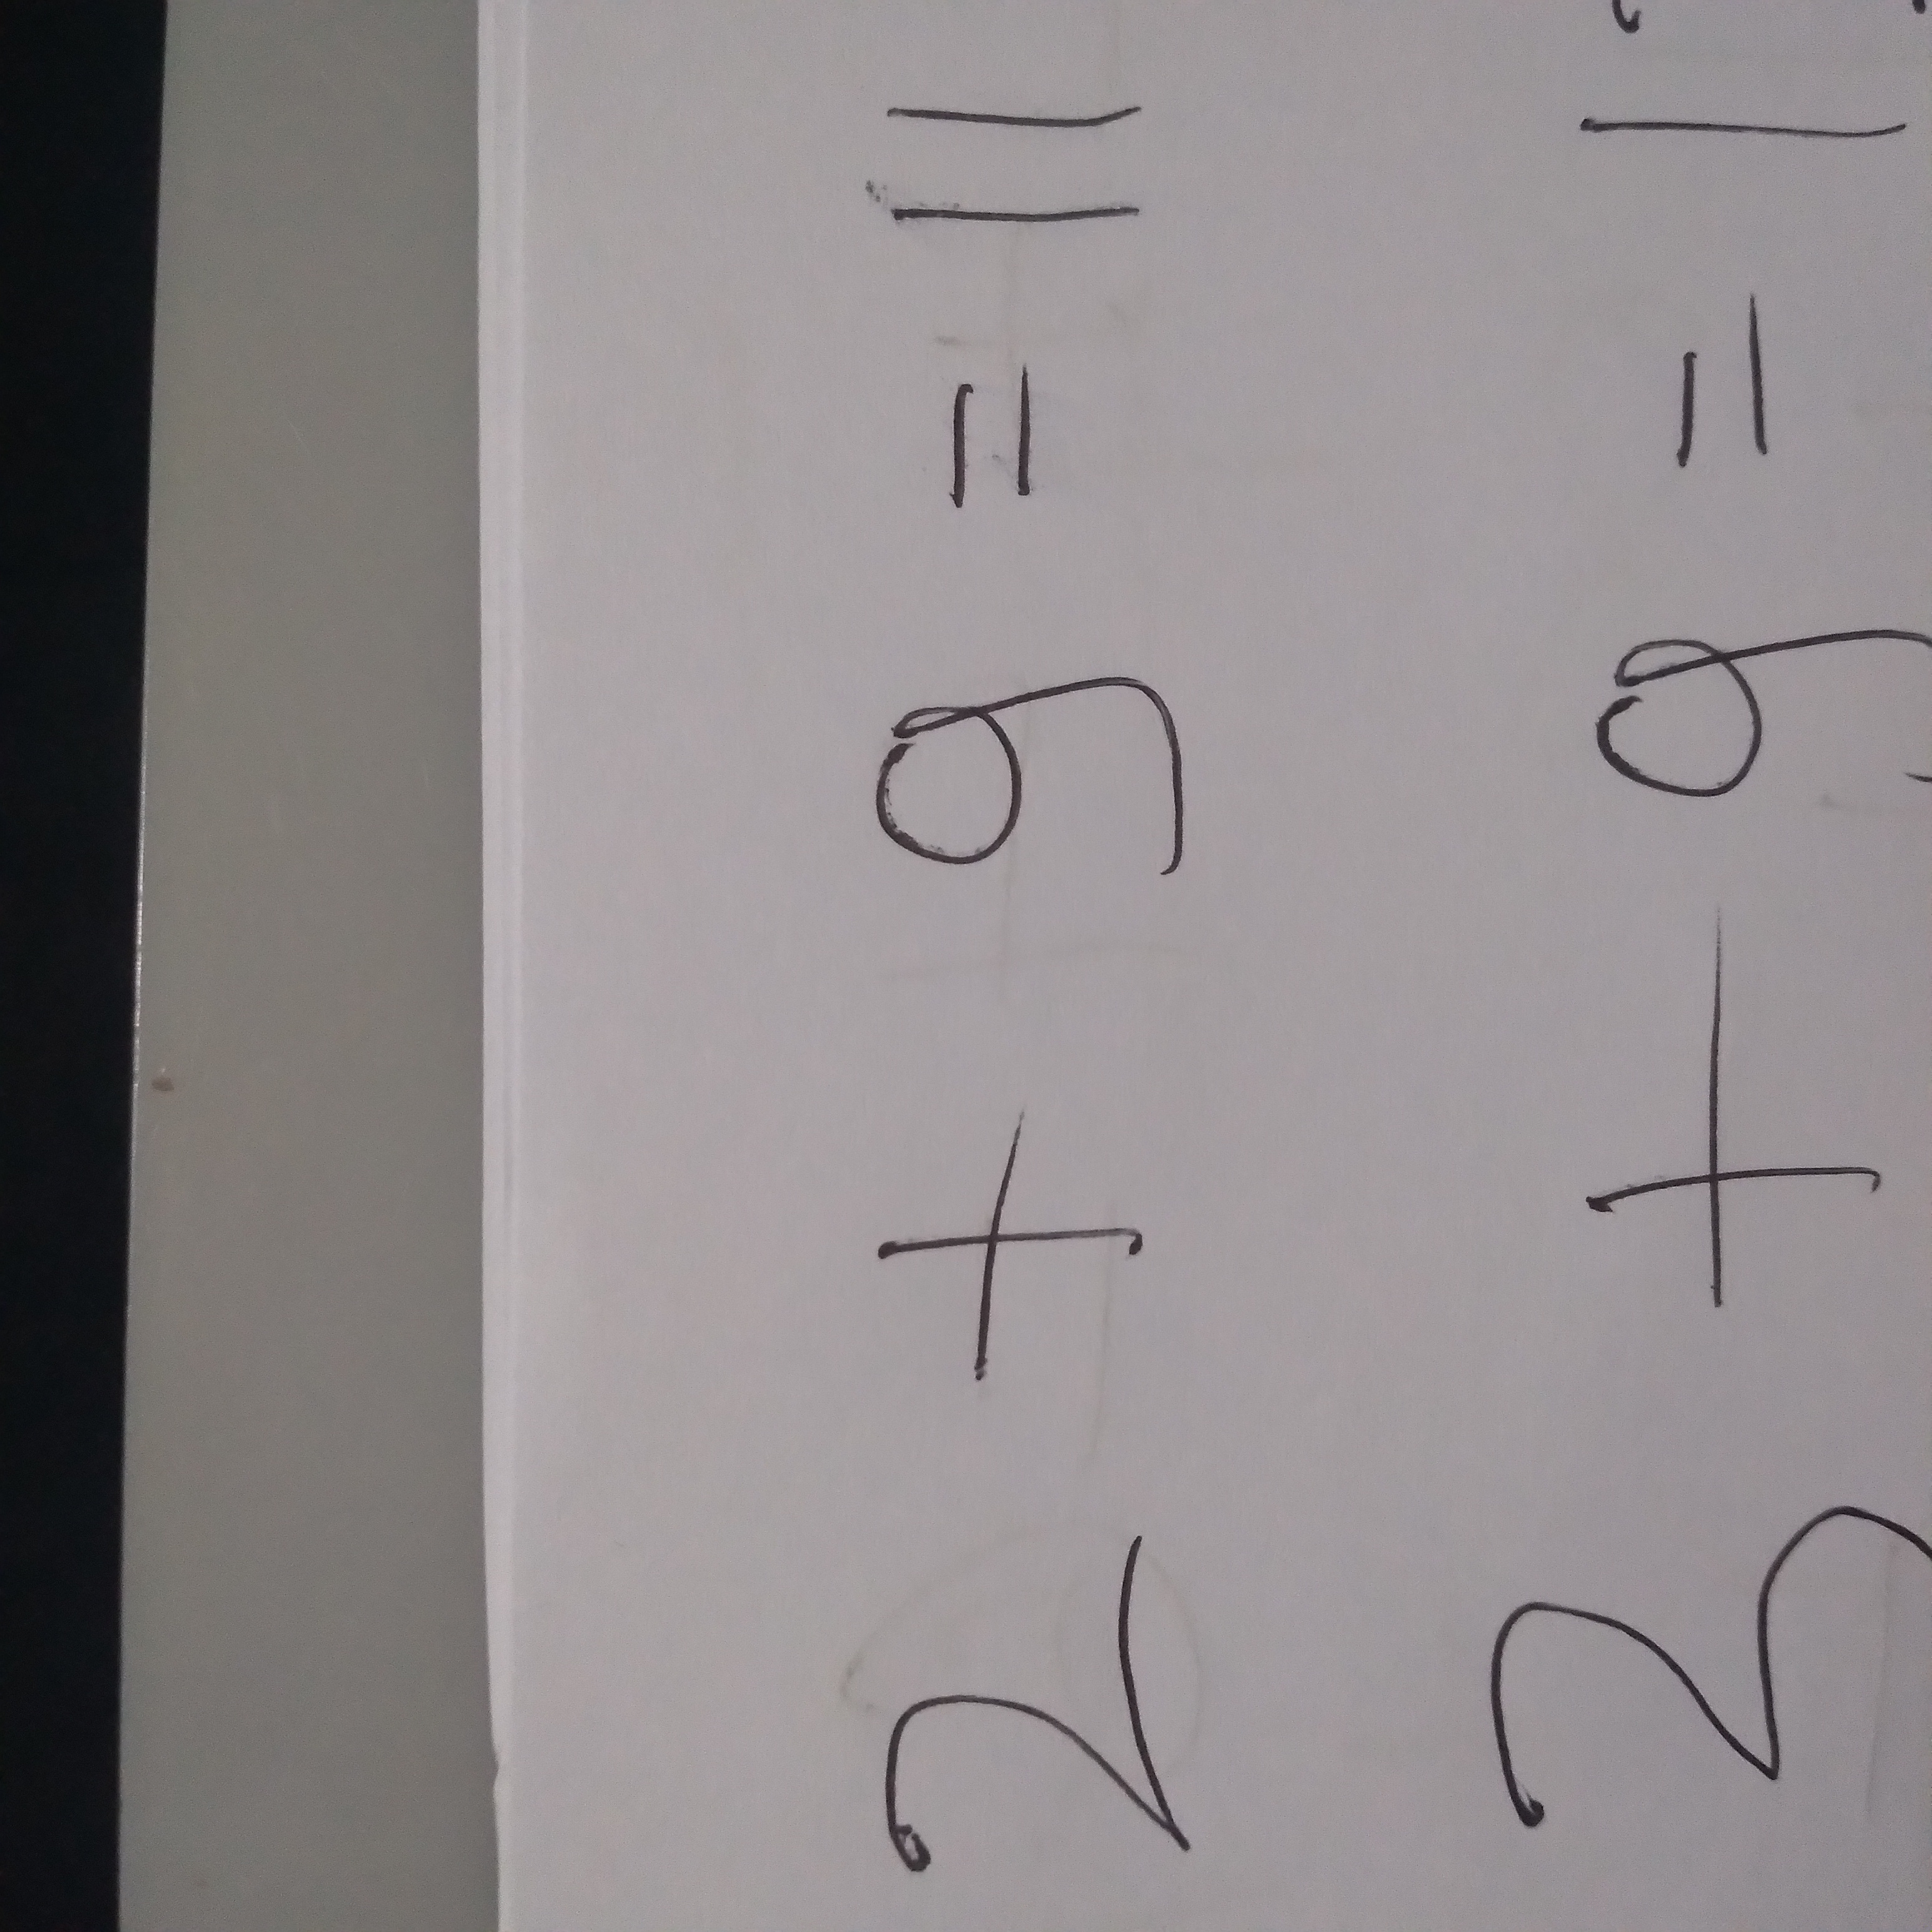 2 + 9 = 11
3 + 9 = 1